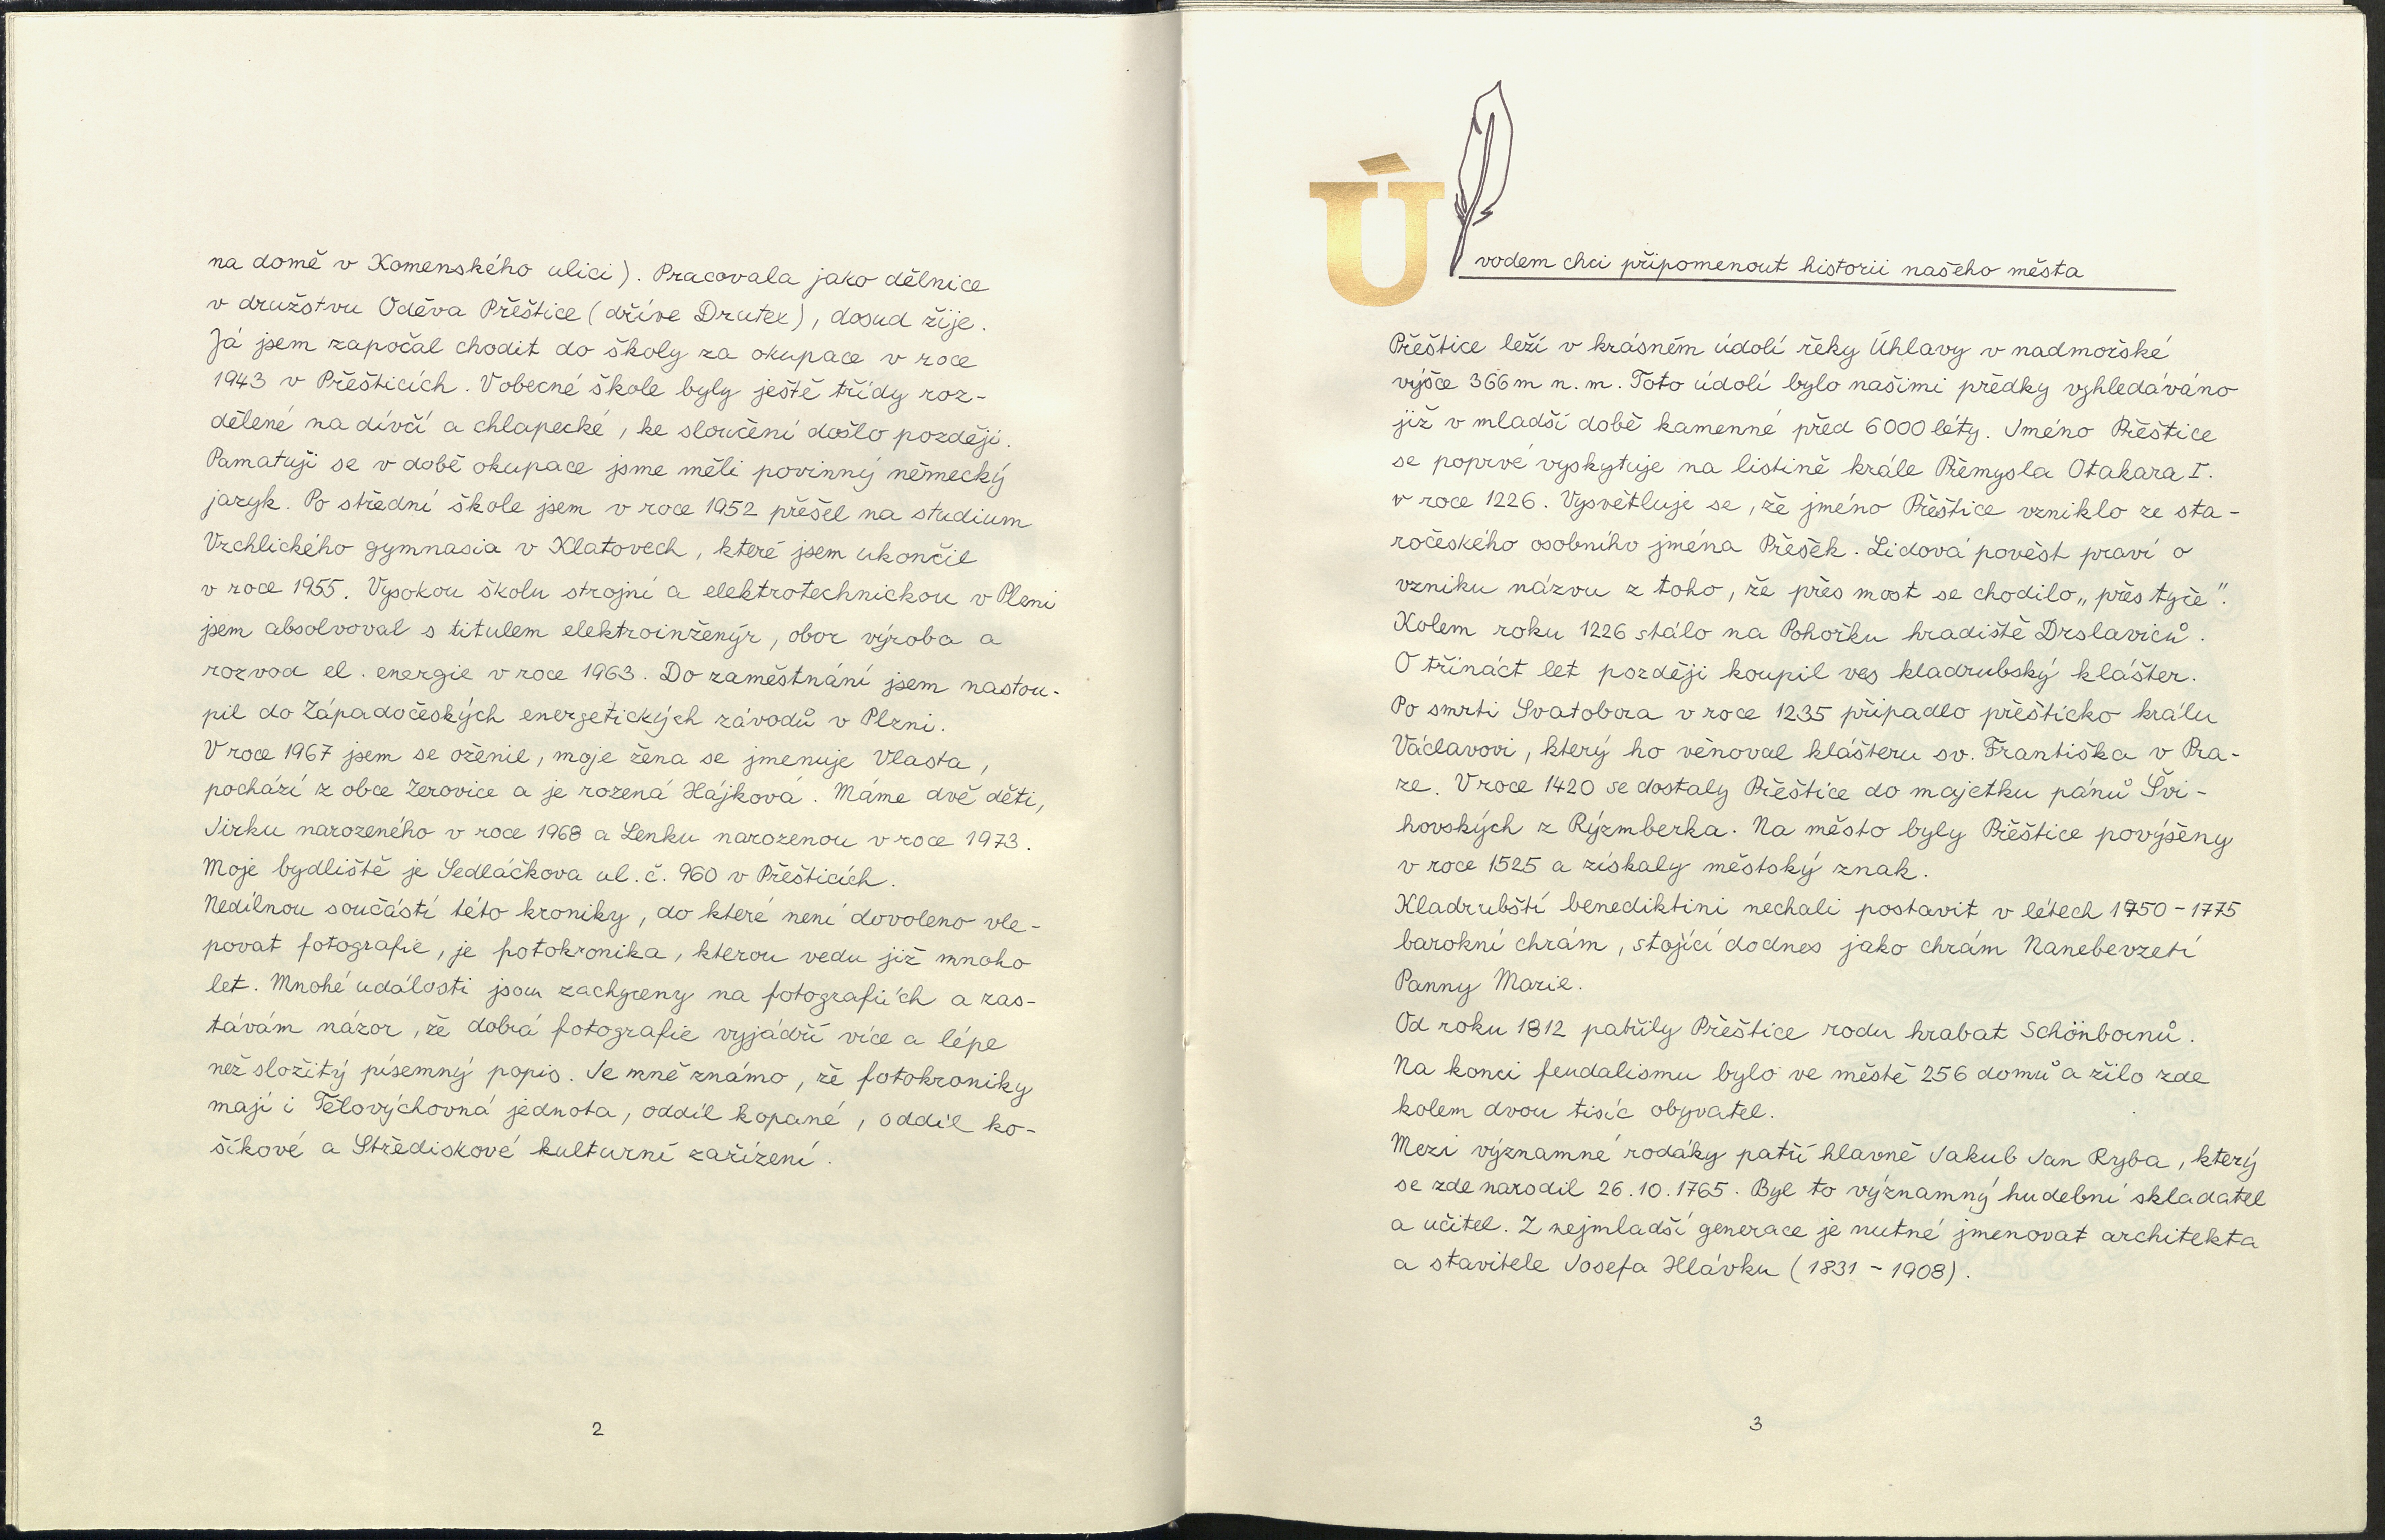 na domě v Komenského ulici). Pracovala jako dělnice
v družstvu Oděva Přeštice (dříve Drutex), dosud žije.
Já jsem započal chodit do školy za okupace v roce
1943 v Přešticích. V obecné škole byly ještě třídy roz-
dělené na dívčí a chlapecké, ke sloučení došlo později.
Pamatuji se v době okupace jsme měli povinný německý
jazyk. Po střední škole jsem v roce 1952 přešel na studium
Vrchlického gymnasia v Klatovech, které jsem ukončil
v roce 1955. Vysokou školu strojní a elektrotechnickou v Plzni
jsem absolvoval s titulem elektroinženýr, obor výroba a
rozvod el. energie v roce 1963. Do zaměstnání jsem nastou-
pil do Západočeských energetických závodů v Plzni.
V roce 1967 jsem se oženil, moje žena se jmenuje Vlasta,
pochází z obce Žerovice a je rozená Hájková. Máme dvě děti,
Jirku narozeného v roce 1968 a Lenku narozenou v roce 1973.
Moje bydliště je Sedláčkova ul. č. 960 v Přešticích.
Nedílnou součástí této kroniky, do které není dovoleno vle-
povat fotografie, je fotokronika, kterou vedu již mnoho
let. Mnohé události jsou zachyceny na fotografiích a zas-
távám názor, že dobrá fotografie vyjádří více a lépe
než složitý písemný popis. Je mně známo, že fotokroniky
mají i Tělovýchovná jednota, oddíl kopané, oddíl ko-
šíkové a Střediskové kulturní zařízení.
2
Úvodem chci připomenout historii našeho města
Přeštice leží v krásném údolí řeky Úhlavy v nadmořské
výšce 366 m n. m. Toto údolí bylo našimi předky vyhledáváno
již v mladší době kamenné před 6000 léty. Jméno Přeštice
se poprvé vyskytuje na listině krále Přemysla Otakara I.
v roce 1226. Vysvětluje se, že jméno Přeštice vzniklo ze sta-
ročeského osobního jména Přešek. Lidová pověst praví o
vzniku názvu z toho, že přes most se chodilo „přes tyče".
Kolem roku 1226 stálo na Pohořku hradiště Drslaviců.
O třináct let později koupil ves kladrubský klášter.
Po smrti Svatobora v roce 1235 připadlo přešticko králu
Václavovi, který ho věnoval klášteru sv. Františka v Pra-
ze. V roce 1420 se dostaly Přeštice do majetku pánů Švi-
hovských z Rýzmberka. Na město byly Přeštice povýšeny
v roce 1525 a získaly městský znak.
Kladrubští benediktini nechali postavit v létech 1750-1775
barokní chrám, stojící dodnes jako chrám Nanebevzetí
Panny Marie.
Od roku 1812 patřily Přeštice rodu hrabat Schönbornů.
Na konci feudalismu bylo ve městě 256 domů a žilo zde
kolem dvou tisíc obyvatel.
Mezi významné rodáky patří hlavně Jakub Jan Ryba, který
se zde narodil 26.10.1765. Byl to významný hudební skladatel
a učitel. Z nejmladší generace je nutné jmenovat architekta
a stavitele Josefa Hlávku (1831 - 1908).
3